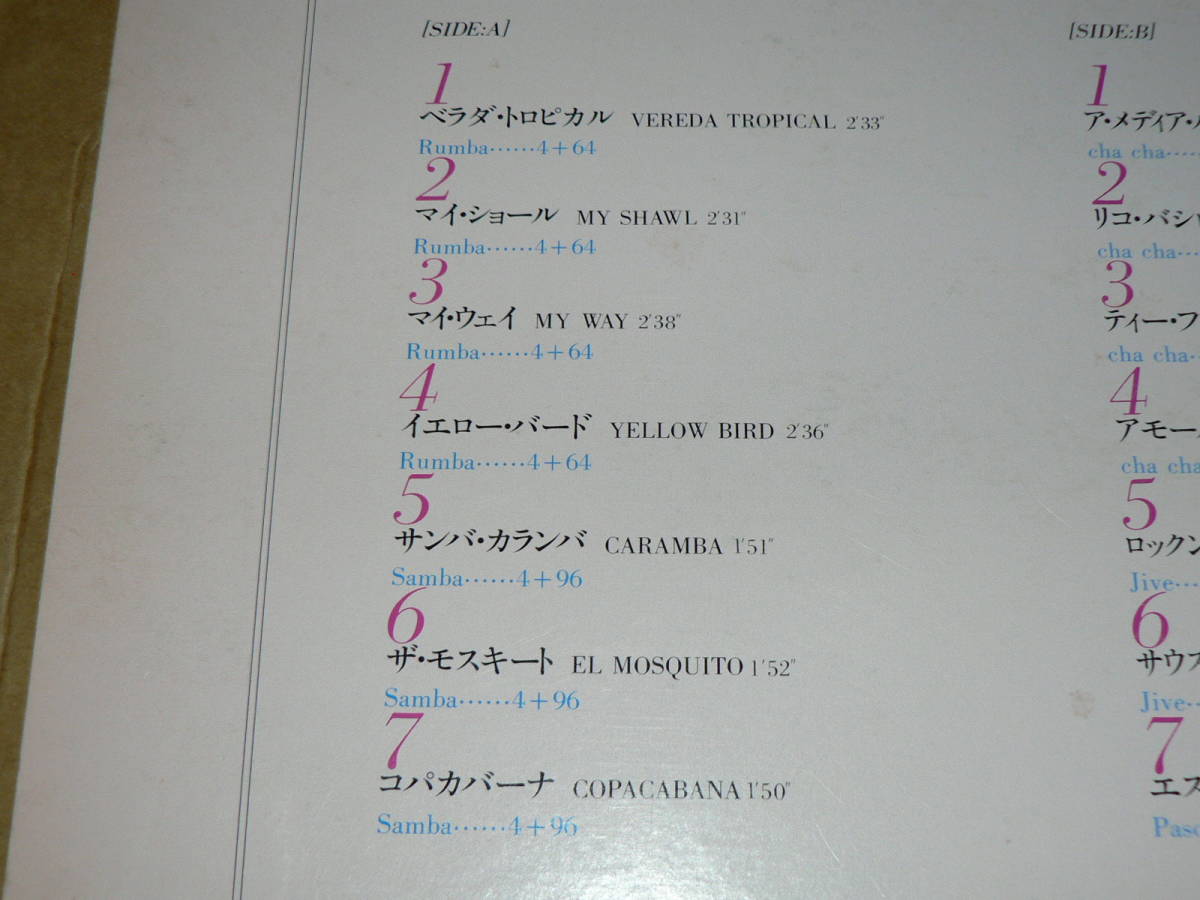 [SIDE:A]
1
ベラダ・トロピカル VEREDA TROPICAL 2'33"
Rumba……4+64
2
マイ・ショール MY SHAWL 2'31"
Rumba……4+64
3
マイ・ウェイ MY WAY 2'38"
Rumba……4+64
4
イエロー・バード YELLOW BIRD 2'36"
Rumba……4+64
5
サンバ・カランバ CARAMBA 1'51"
Samba……4+96
6
ザ・モスキート EL MOSQUITO 1'52"
Samba……4+96
7
コパカバーナ COPACABANA 1'50"
Samba……4+96
[SIDE:B]
1
ア・メディア・
cha cha……
2
リコ・バシ
cha cha……
3
ティー・フ
cha cha……
4
アモー
cha cha
5
ロックン
Jive……
6
サウス
Jive……
7
エス
Paso